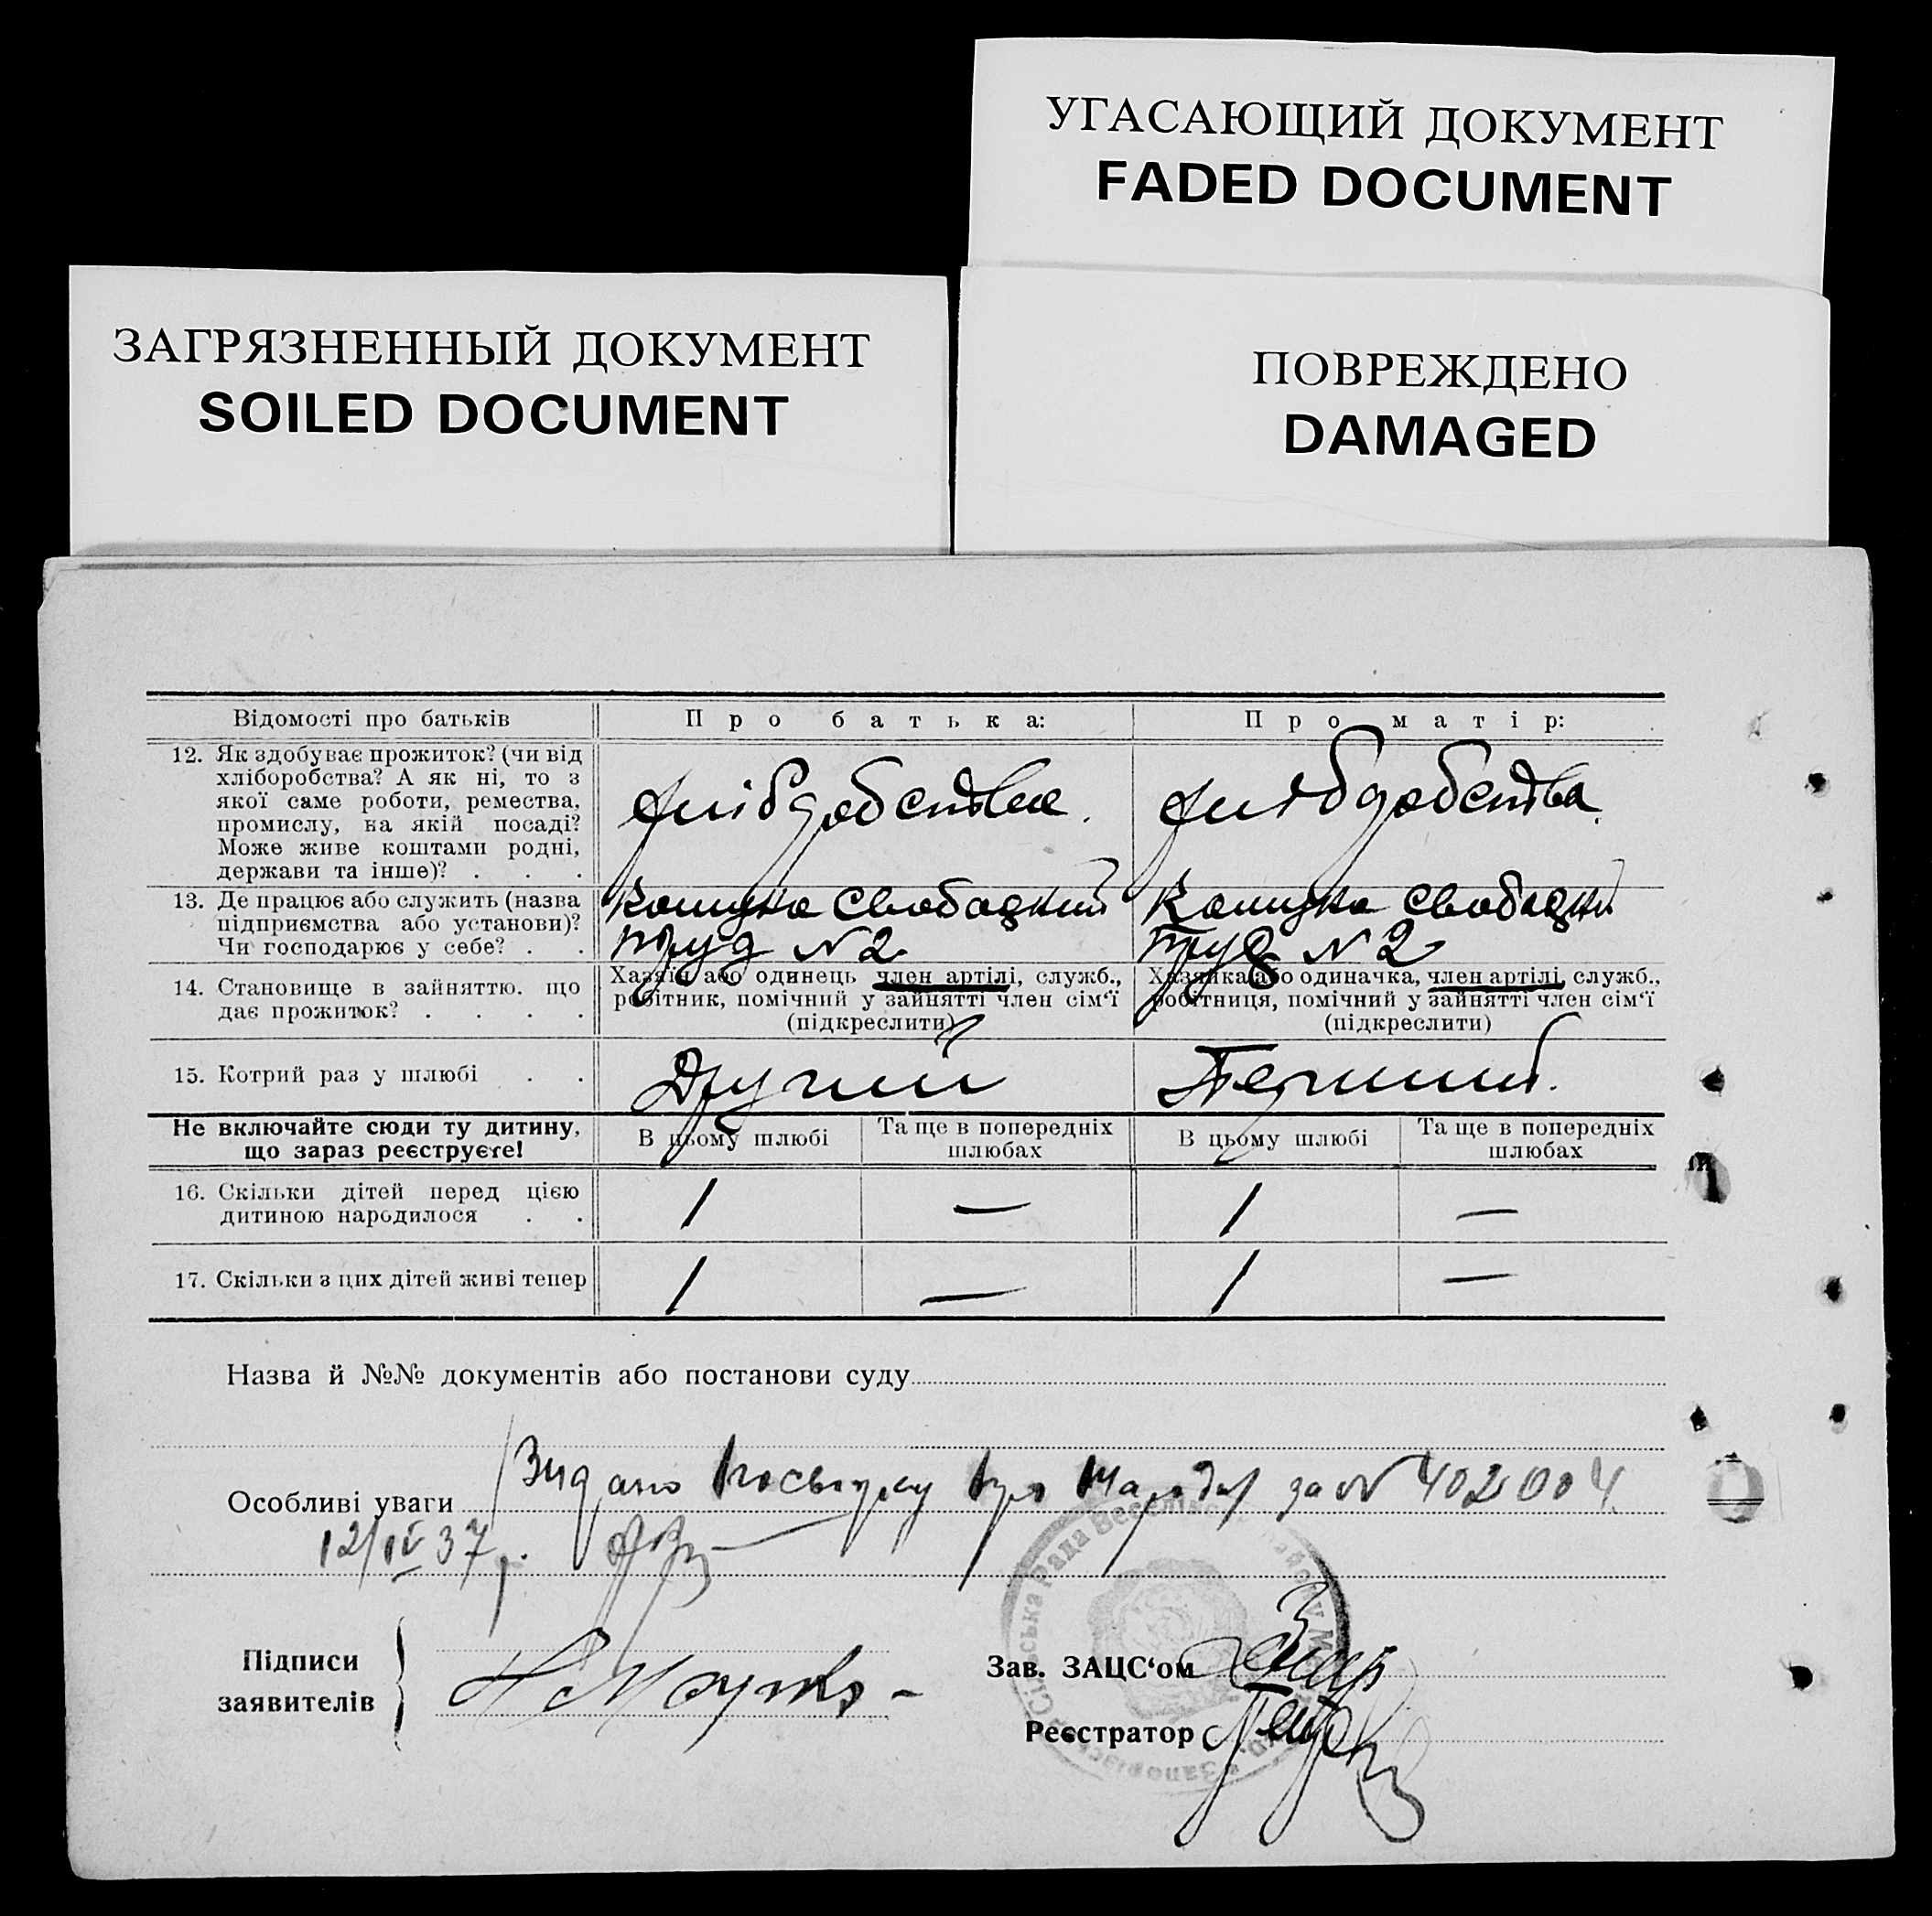 УГАСАЮЩИЙ ДОКУМЕНТ
FADED DOCUMENT
ЗАГРЯЗНЕННЫЙ ДОКУМЕНТ
SOILED DOCUMENT
ПОВРЕЖДЕНО
DAMAGED
Відомості про батьків
Про батька:
Про матір:
12. Як здобуває прожиток? (чи від
хліборобства? А як ні, то з
якої саме роботи, ремества,
промислу, на якій посаді?
Може живе коштами родні,
держави та інше)? . . .
13. Де працює або служить (назва
підприємства або установи)?
Чи господарює у себе? . .
труд N 2
труд N 2
14. Становище в зайняттю, що
дає прожиток? . . . .
Хазяїн або одинець член артілі, служб.,
робітник, помічний у зайнятті член сім'ї
(підкреслити)
Хазяйка або одиначка, член артілі, служб.,
робітниця, помічний у зайнятті член сім'ї
(підкреслити)
15. Котрий раз у шлюбі . .
Другий
Перший.
Не включайте сюди ту дитину,
що зараз реєструєте!
В цьому шлюбі
Та ще в попередніх
шлюбах
В цьому шлюбі
Та ще в попередніх
шлюбах
16. Скільки дітей перед цією
дитиною народилося . .
1 — 1 —
17. Скільки з цих дітей живі тепер
1 — 1 —
Назва й №№ документів або постанови суду
Особливі уваги
Видано посвідку про народ за N 402004
12/IV 37
Підписи
заявителів
Зав. ЗАЦС'ом
Реєстратор
Сільська Рада